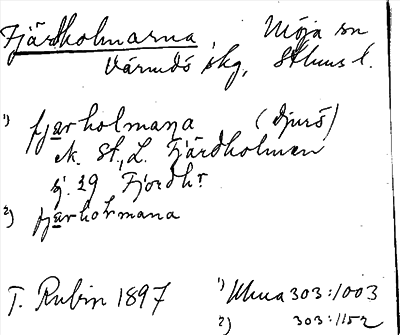 Fjärdholmarna, Möja sn
Värmdö skg, Sthms l.
1) fjarholmana (Djurö)
ek. St., L. Fjärdholmen
sj. 29 Fjordhr
2) fjarholmana
T. Rubin 1897 1) Uhua 303:1003
2) 303:1152